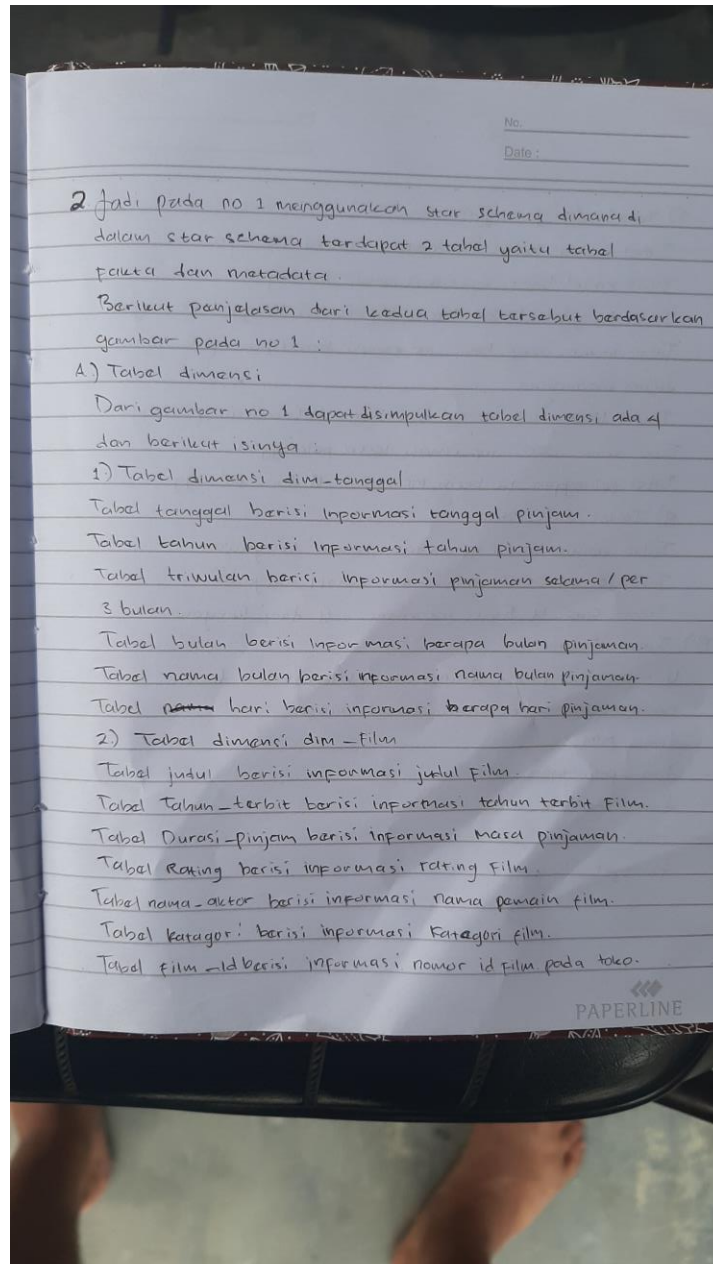 No.
Date :
2 Jadi pada no 1 menggunakan star schema dimana di
dalam star schema terdapat 2 tabel yaitu tabel
fakta dan metadata.
Berikut penjelasan dari kedua tabel tersebut berdasarkan
gambar pada no 1 :
A.) Tabel dimensi
Dari gambar no 1 dapat disimpulkan tabel dimensi ada 4
dan berikut isinya :
1.) Tabel dimensi dim-tanggal
Tabel tanggal berisi informasi tanggal pinjam.
Tabel tahun berisi informasi tahun pinjam.
Tabel triwulan berisi informasi pinjaman selama / per
3 bulan.
Tabel bulan berisi informasi berapa bulan pinjaman
Tabel nama bulan berisi informasi nama bulan pinjaman.
Tabel hari berisi informasi berapa hari pinjaman.
2.) Tabel dimensi dim-Film
Tabel judul berisi informasi judul Film.
Tabel Tahun-terbit berisi informasi tahun terbit Film.
Tabel Durasi-pinjam berisi informasi Masa pinjaman.
Tabel Rating berisi informasi rating Film.
Tabel nama-aktor berisi informasi nama pemain film.
Tabel Katagori berisi informasi Katagori film.
Tabel Film-Id berisi informasi nomor id film pada toko.
PAPERLINE